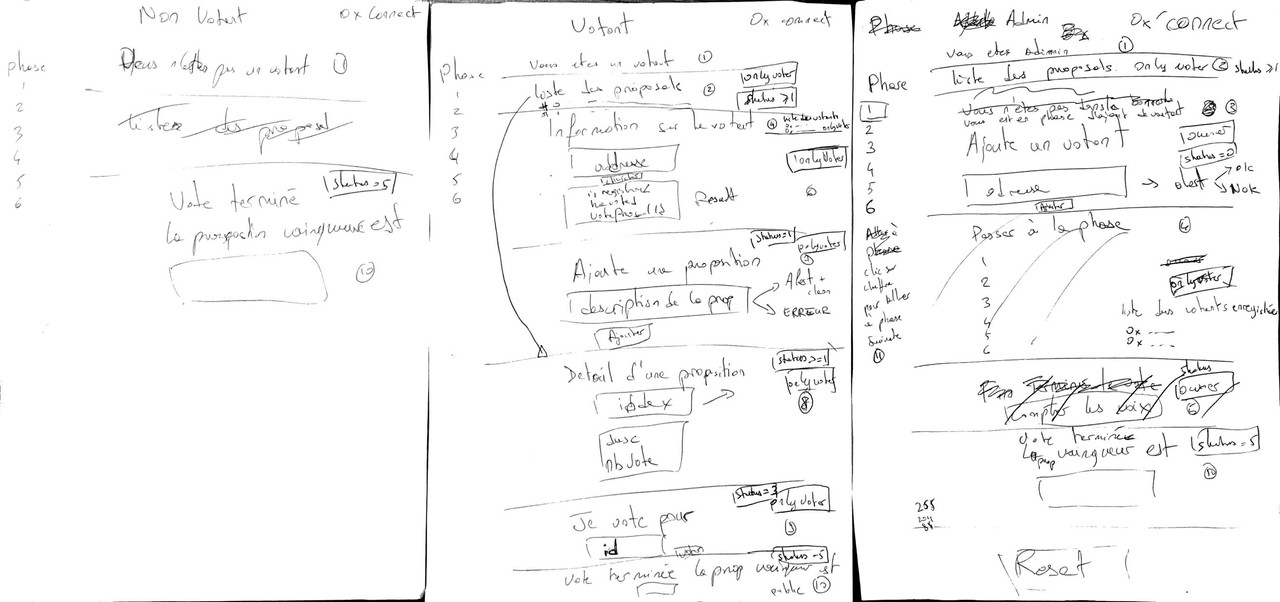 Non Votant
0x Connect
phase
Vous n'êtes pas un votant 1
1
2
3
4
5
6
Liste des proposal
status = 5
Vote terminé
la proposition vainqueur est
10
Votant
0x connect
Phase
1
2
3
4
5
6
Vous etes un votant 1
only voter
liste des proposals 2
status ≥ 1
Information sur le votant 4
only voter
addresse
is registered
has voted
voteProp (id)
Result
status = 1
only voter
Ajoute une proposition
description de la prop
Alert +
clean
ERREUR
Ajouter
status >= 1
Detail d'une proposition
only voter
8
index
desc
nb vote
status = 3
only voter
Je vote pour
9
id
voter
status = 5
vote terminée la prop vainqueur est
public 10
Phase
Admin
0x connect
vous etes admin 1
liste des proposals. only voter 2 status ≥ 1
Phase
1
2
3
4
5
6
vous etes phase d'ajout de votant
3
Ajoute un votant
owner
status = 0
adresse
alert
ok
Nok
Ajouter
Passer à la phase
1
2
3
4
5
6
clic sur
chiffre
pour
la phase
suivante
11
only voter
liste des votants enregistrés
0x ----
0x ----
status
owner
Compter les voix
6
vote terminée
la prop vainqueur est
status = 5
10
255
Reset